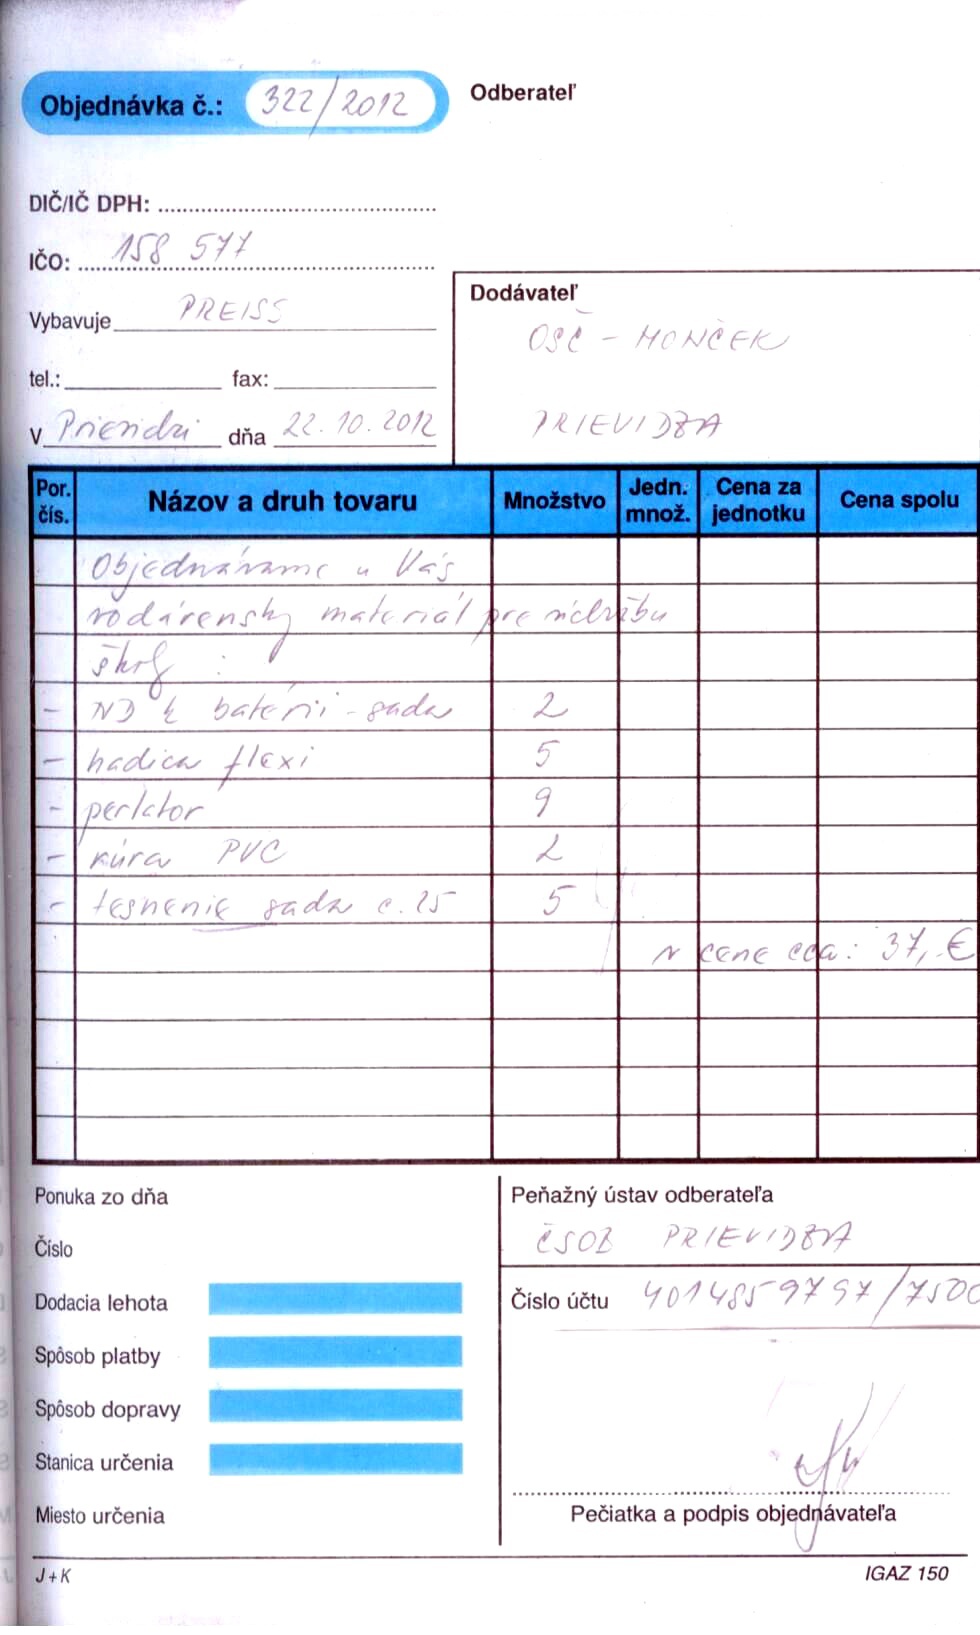 Objednávka č.: 322/2012
Odberateľ
DIČ/IČ DPH:
IČO: 158 577
Vybavuje PREISS
tel.: fax:
V Prievidzi dňa 22.10.2012
Dodávateľ
OSČ - MONČEK
PRIEVIDZA
Por. čís. Názov a druh tovaru Množstvo Jedn. množ. Cena za jednotku Cena spolu
Objednávame u Vás
vodárensky materiál pre údržbu
školy :
- ND k batérii - sada 2
- hadica flexi 5
- perlátor 9
- rúra PVC 2
- tesnenie sada č. 25 5
v cene cca: 37,- €
Ponuka zo dňa
Číslo
Dodacia lehota
Spôsob platby
Spôsob dopravy
Stanica určenia
Miesto určenia
Peňažný ústav odberateľa
ČSOB PRIEVIDZA
Číslo účtu 4014859797/7500
Pečiatka a podpis objednávateľa
J+K
IGAZ 150